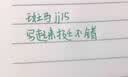 斑马jj15
写起来挺不错